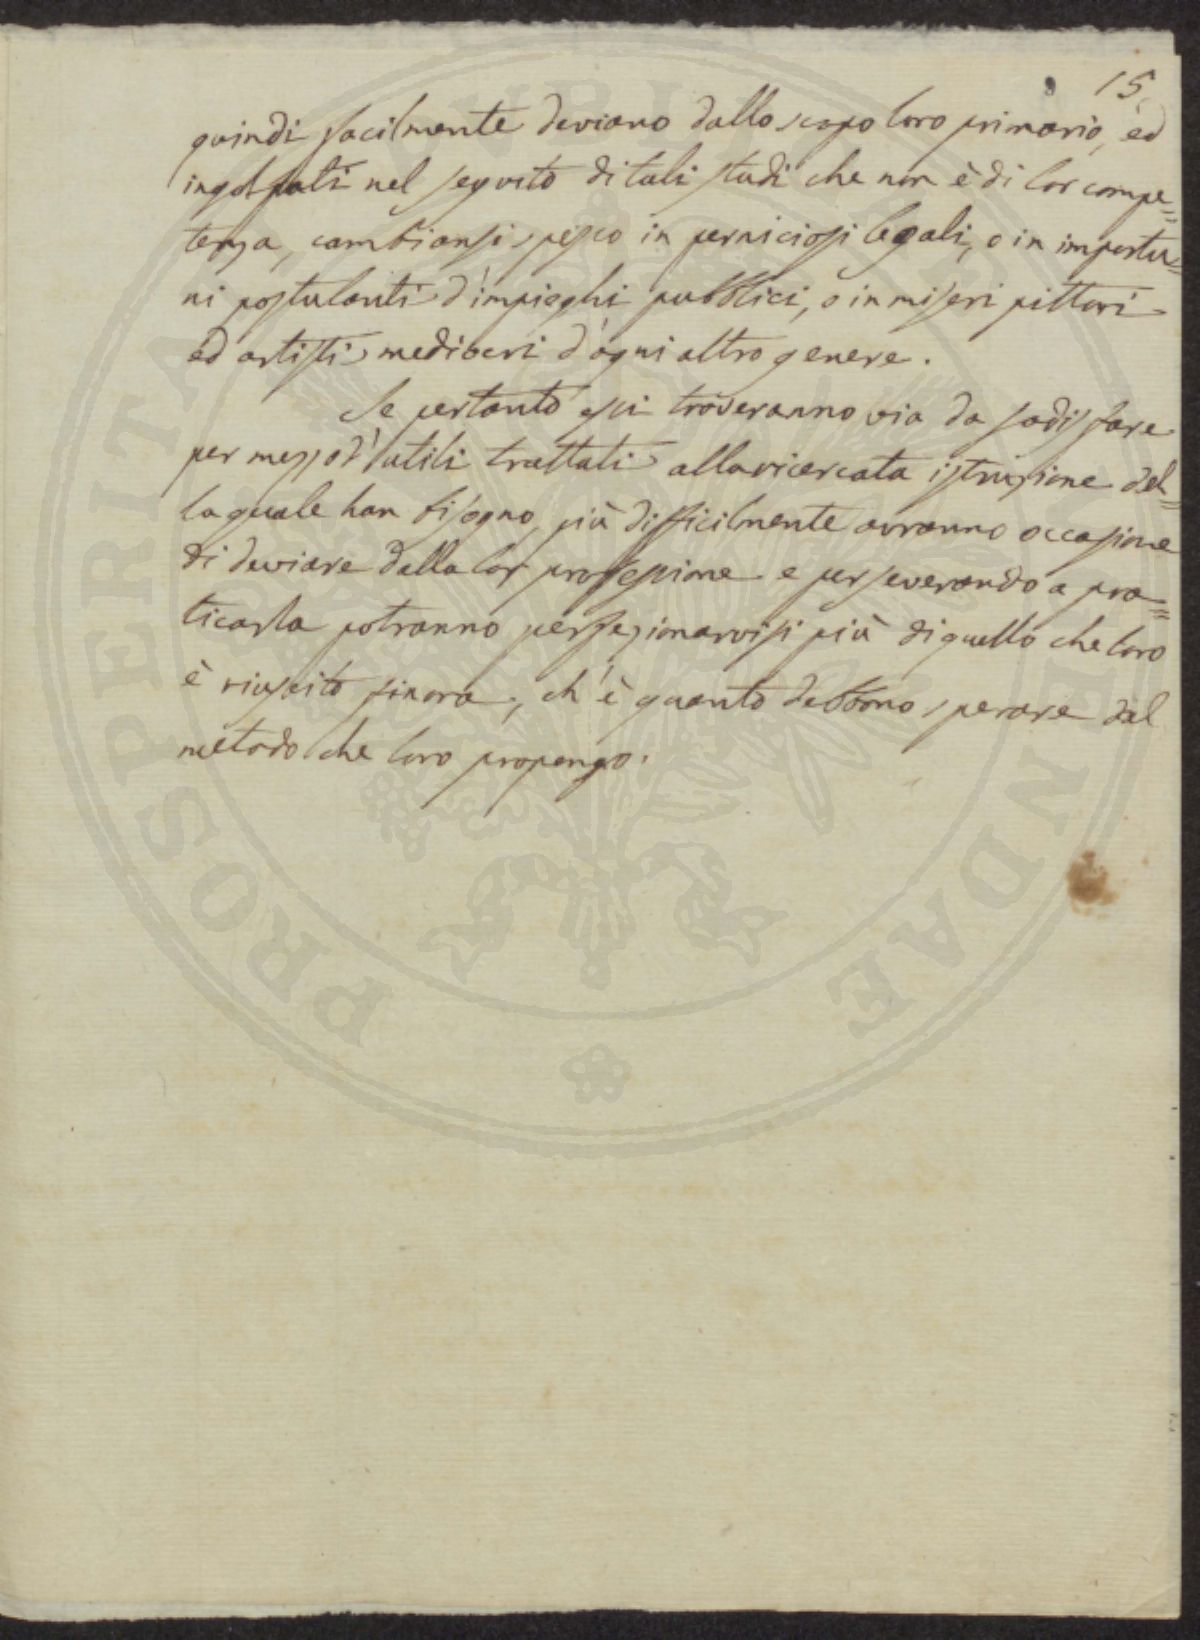 15.
quindi facilmente deviano dallo scopo loro primario, ed
ingolfati nel seguito di tali studi che non è di lor compe=
tenza, cambiansi spesso in perniciosi legali, o in importu=
ni postulanti d'impieghi pubblici, o in miseri pittori
ed artisti mediocri d'ogni altro genere.
Se pertanto essi troveranno via da sodisfare
per mezzo d'utili trattati alla ricercata istruzione del=
la quale han bisogno, più difficilmente avranno occasione
di deviare dalla lor professione e perseverando a pra=
ticarla potranno perfezionarvisi più di quello che loro
è riuscito finora, ch'è quanto debbono sperare dal
metodo che loro propongo.
PROSPERITATI PUBLICAE AUGENDAE